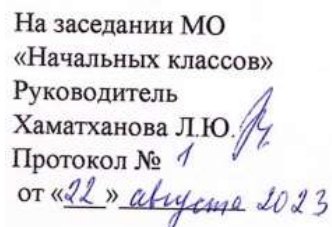 На заседании МО
«Начальных классов»
Руководитель
Хаматханова Л.Ю.
Протокол № 1
от «22» августа 2023